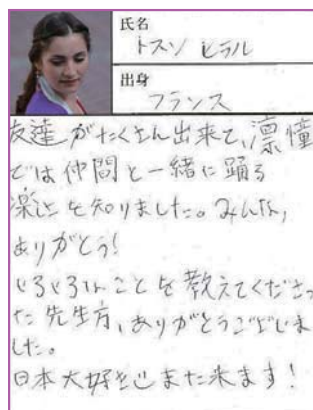 氏名
トスン ヒラル
出身
フランス
友達がたくさん出来て、凛憧
では仲間と一緒に踊る
楽しさを知りました。みんな,
ありがとう!
いろいろなことを教えてくださっ
た先生方、ありがとうございま
した。
日本大好き
また来ます!